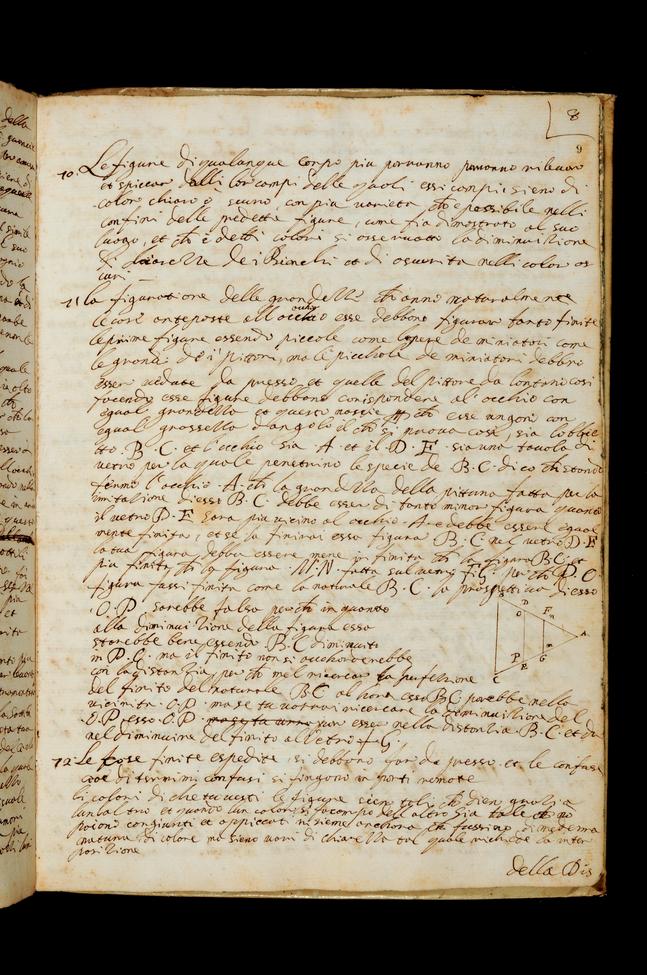 8
9
10. Le figure di qualunque corpo piu porranno parranno rilevar
et spiccar dalli lor campi delle quali essi campi sieno di
colore chiaro o scuro, con piu varieta che è possibile nelli
confini delle predette figure, come fia dimostrato al suo
luogo, et che i detti colori si osservatto la diminuizione
di chiarezza de i Bianchi et di oscurita nelli color os
curi
11 la figuratione delle grandezze che anno naturalmente
le cose anteposte all occhio esse debbono figurar tanto finite
le prime figure essendo piccole come l'opere de miniatori come
le grandi de i Pittori, ma le picchole de miniatori debbn
esser vedute da presso, et quelle del pittore da lontano cosi
facendo esse figure debbono corispondere al occhio con
egual grandezza et questo nascie che esse vngoni con
equal grossezza d'angolo il che si pruova cosi, sia lobbie
tto .B.C. et l'occhio sia A et il D.F. sia una tavola di
vetro per la quale penetrino le specie de B.C. dico che stando
fermo l'occhio .A. che la grandezza della pittura fatta per la
imitazione di esso B.C. debbe esser di tanto minor figura quanto
il vetro D.F sara piu vicino al occhio A. e debbe essere equal
mente finita, et se tu finirai essa figura B.C. nel vetro D.F
la tua figura debbe essere mene in finita che la figura B C, et
piu finita che la figura .N.N fatta sul vetro f.G. perche P.O.
figura fussi finita come la naturale B.C. la prospettiva di esso
.O.P. sarebbe falsa perche in quanto
alla diminuizione della figura essa
starebbe bene essendo B.C diminuiti
in P.O. ma il finito non si accorderebbe
con la distanzia perche nel ricercar la perfezione
del finito del naturale B C al hora esso B C parebbe nella
vicinita .O.P. ma se tu vorrai ricercare la diminuizione del
.O.P. esso .O.P. pare esser nella distanzia .B.C. et da
nel diminuire del finito al Vetro f G,
12 Le cose finite espedite si debbono far da presso et le confuse
cioe di termini confusi si fingono in parti remote
li colori di che tu vesti le figure sien tali che dien gratia
l un l altro et quando un colore si fa campo dell altro sia tale che no
paiono congiunti et appiccati insieme anchora che fussino di medesma
natura di colore ma sieno varii di chiarezza tal quale richiede la inter
posizione
B
D
O
F
n
A
P
m
G
E
C
della Dis